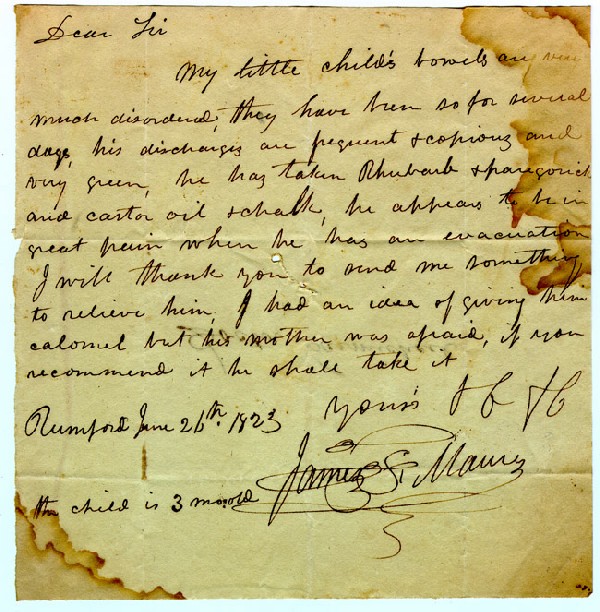 Dear Sir
My little child's bowels are very
much disordered, they have been so for several
days, his discharges are frequent & copious and
very green, he has taken Rhubarb & paregorick
and castor oil & chalk, he appears to be in
great pain when he has an evacuation
I will thank you to send me something
to relieve him, I had an idea of giving him
calomel but his mother was afraid, if you
recommend it he shall take it
Yours &c &c
Rumford June 26th. 1823
James S. Maury
the child is 3 mo: old